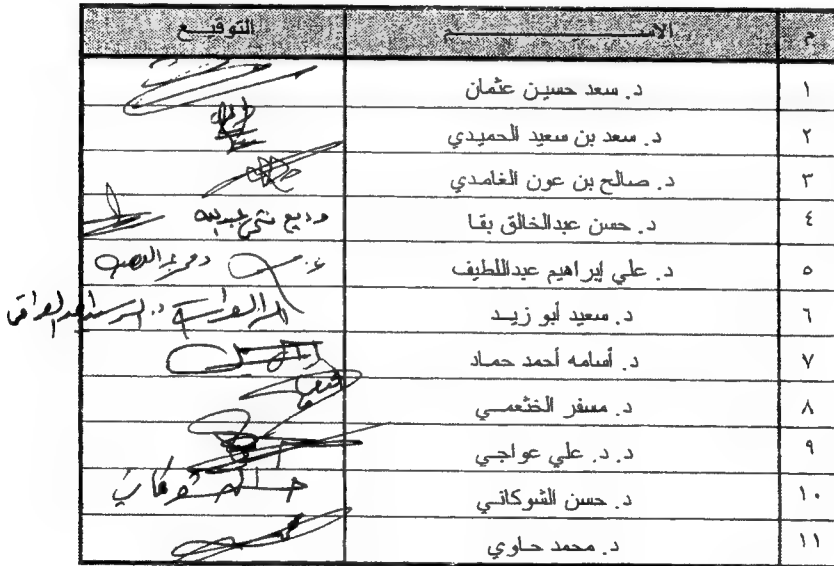 م الاســـــم التوقيــع
١ د. سعد حسين عثمان
٢ د. سعد بن سعيد الحميدي
٣ د. صالح بن عون الغامدي
٤ د. حسن عبدالخالق بقا وديع
٥ د. علي إبراهيم عبداللطيف
٦ د. سعيد أبو زيــد
٧ د. أسامه أحمد حمـاد
٨ د. مسفر الخثعمــي
٩ د. د. علي عواجي
١٠ د. حسن الشوكانـي
١١ د. محمد حـاوي